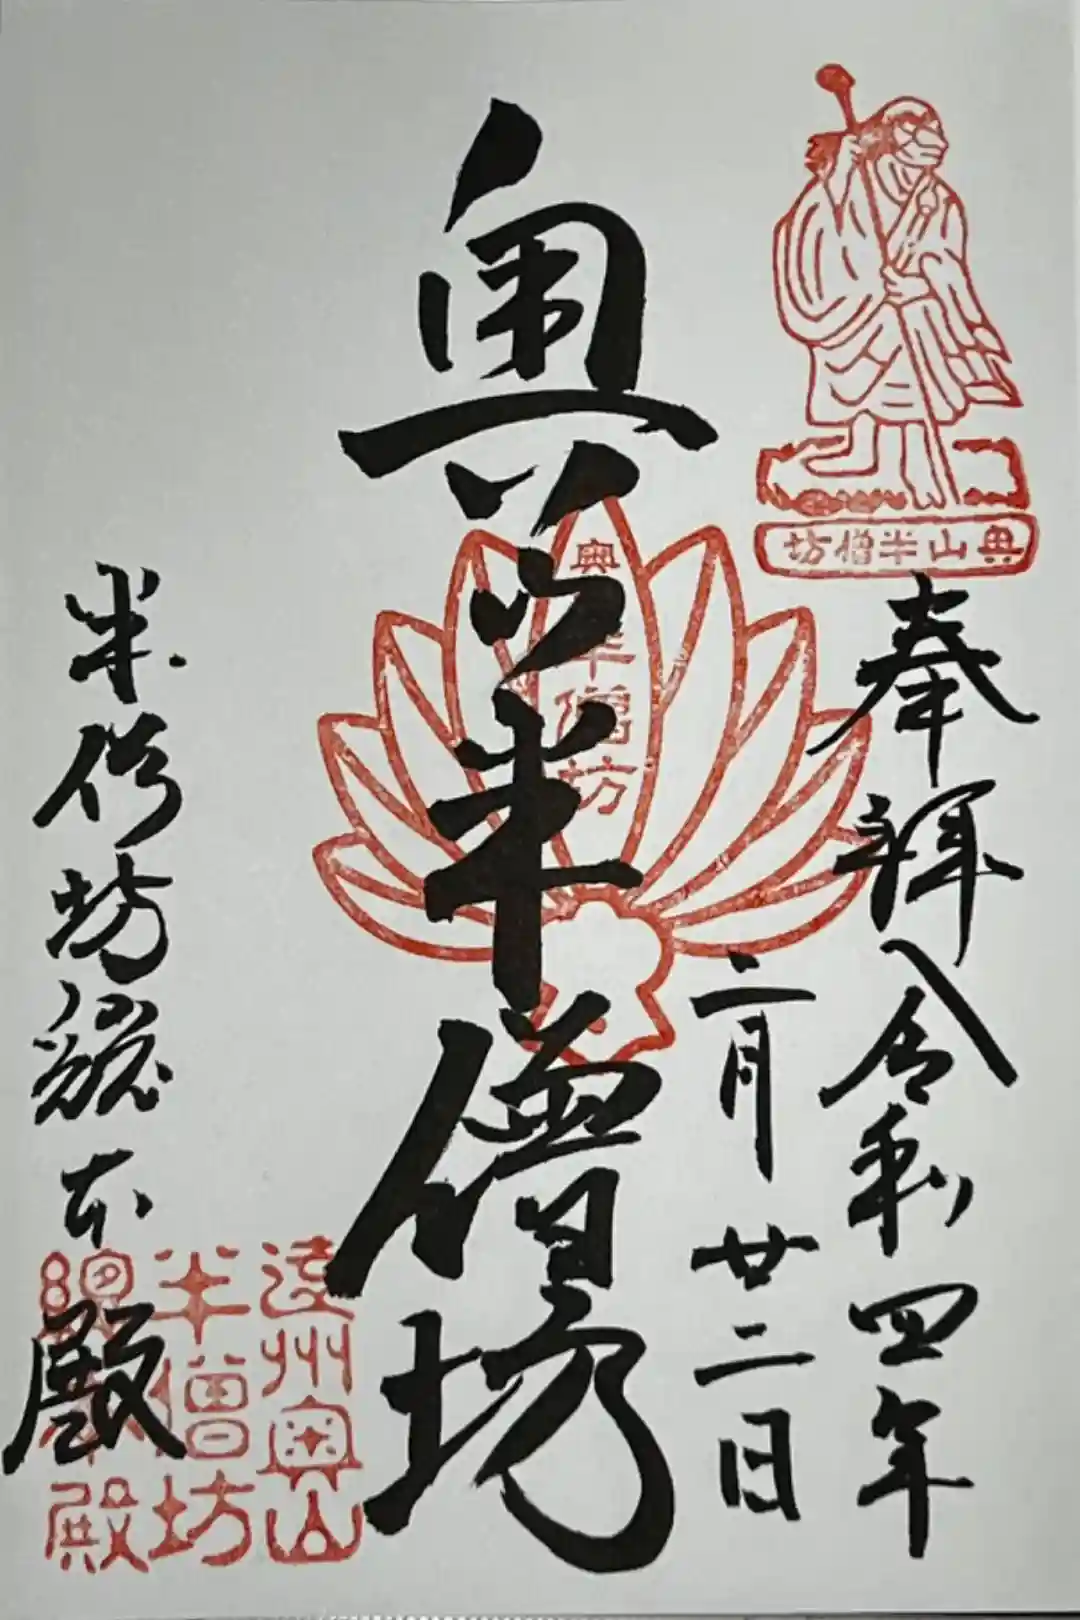 奥山半僧坊
奉拝 令和四年
二月廿二日
奥山半僧坊
奥 半僧坊
半僧坊総本殿
遠州奥山
半僧坊
総本殿